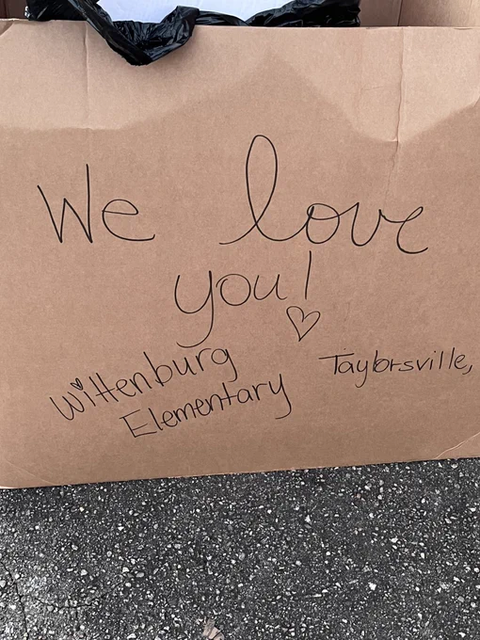 We love
you!
Wittenburg
Elementary
Taylorsville,